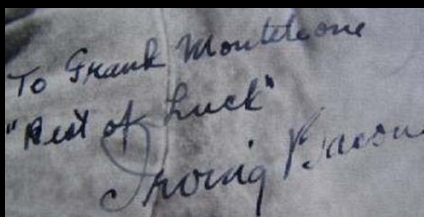 To Frank Monteleone
"Best of Luck"
Irving Bacon